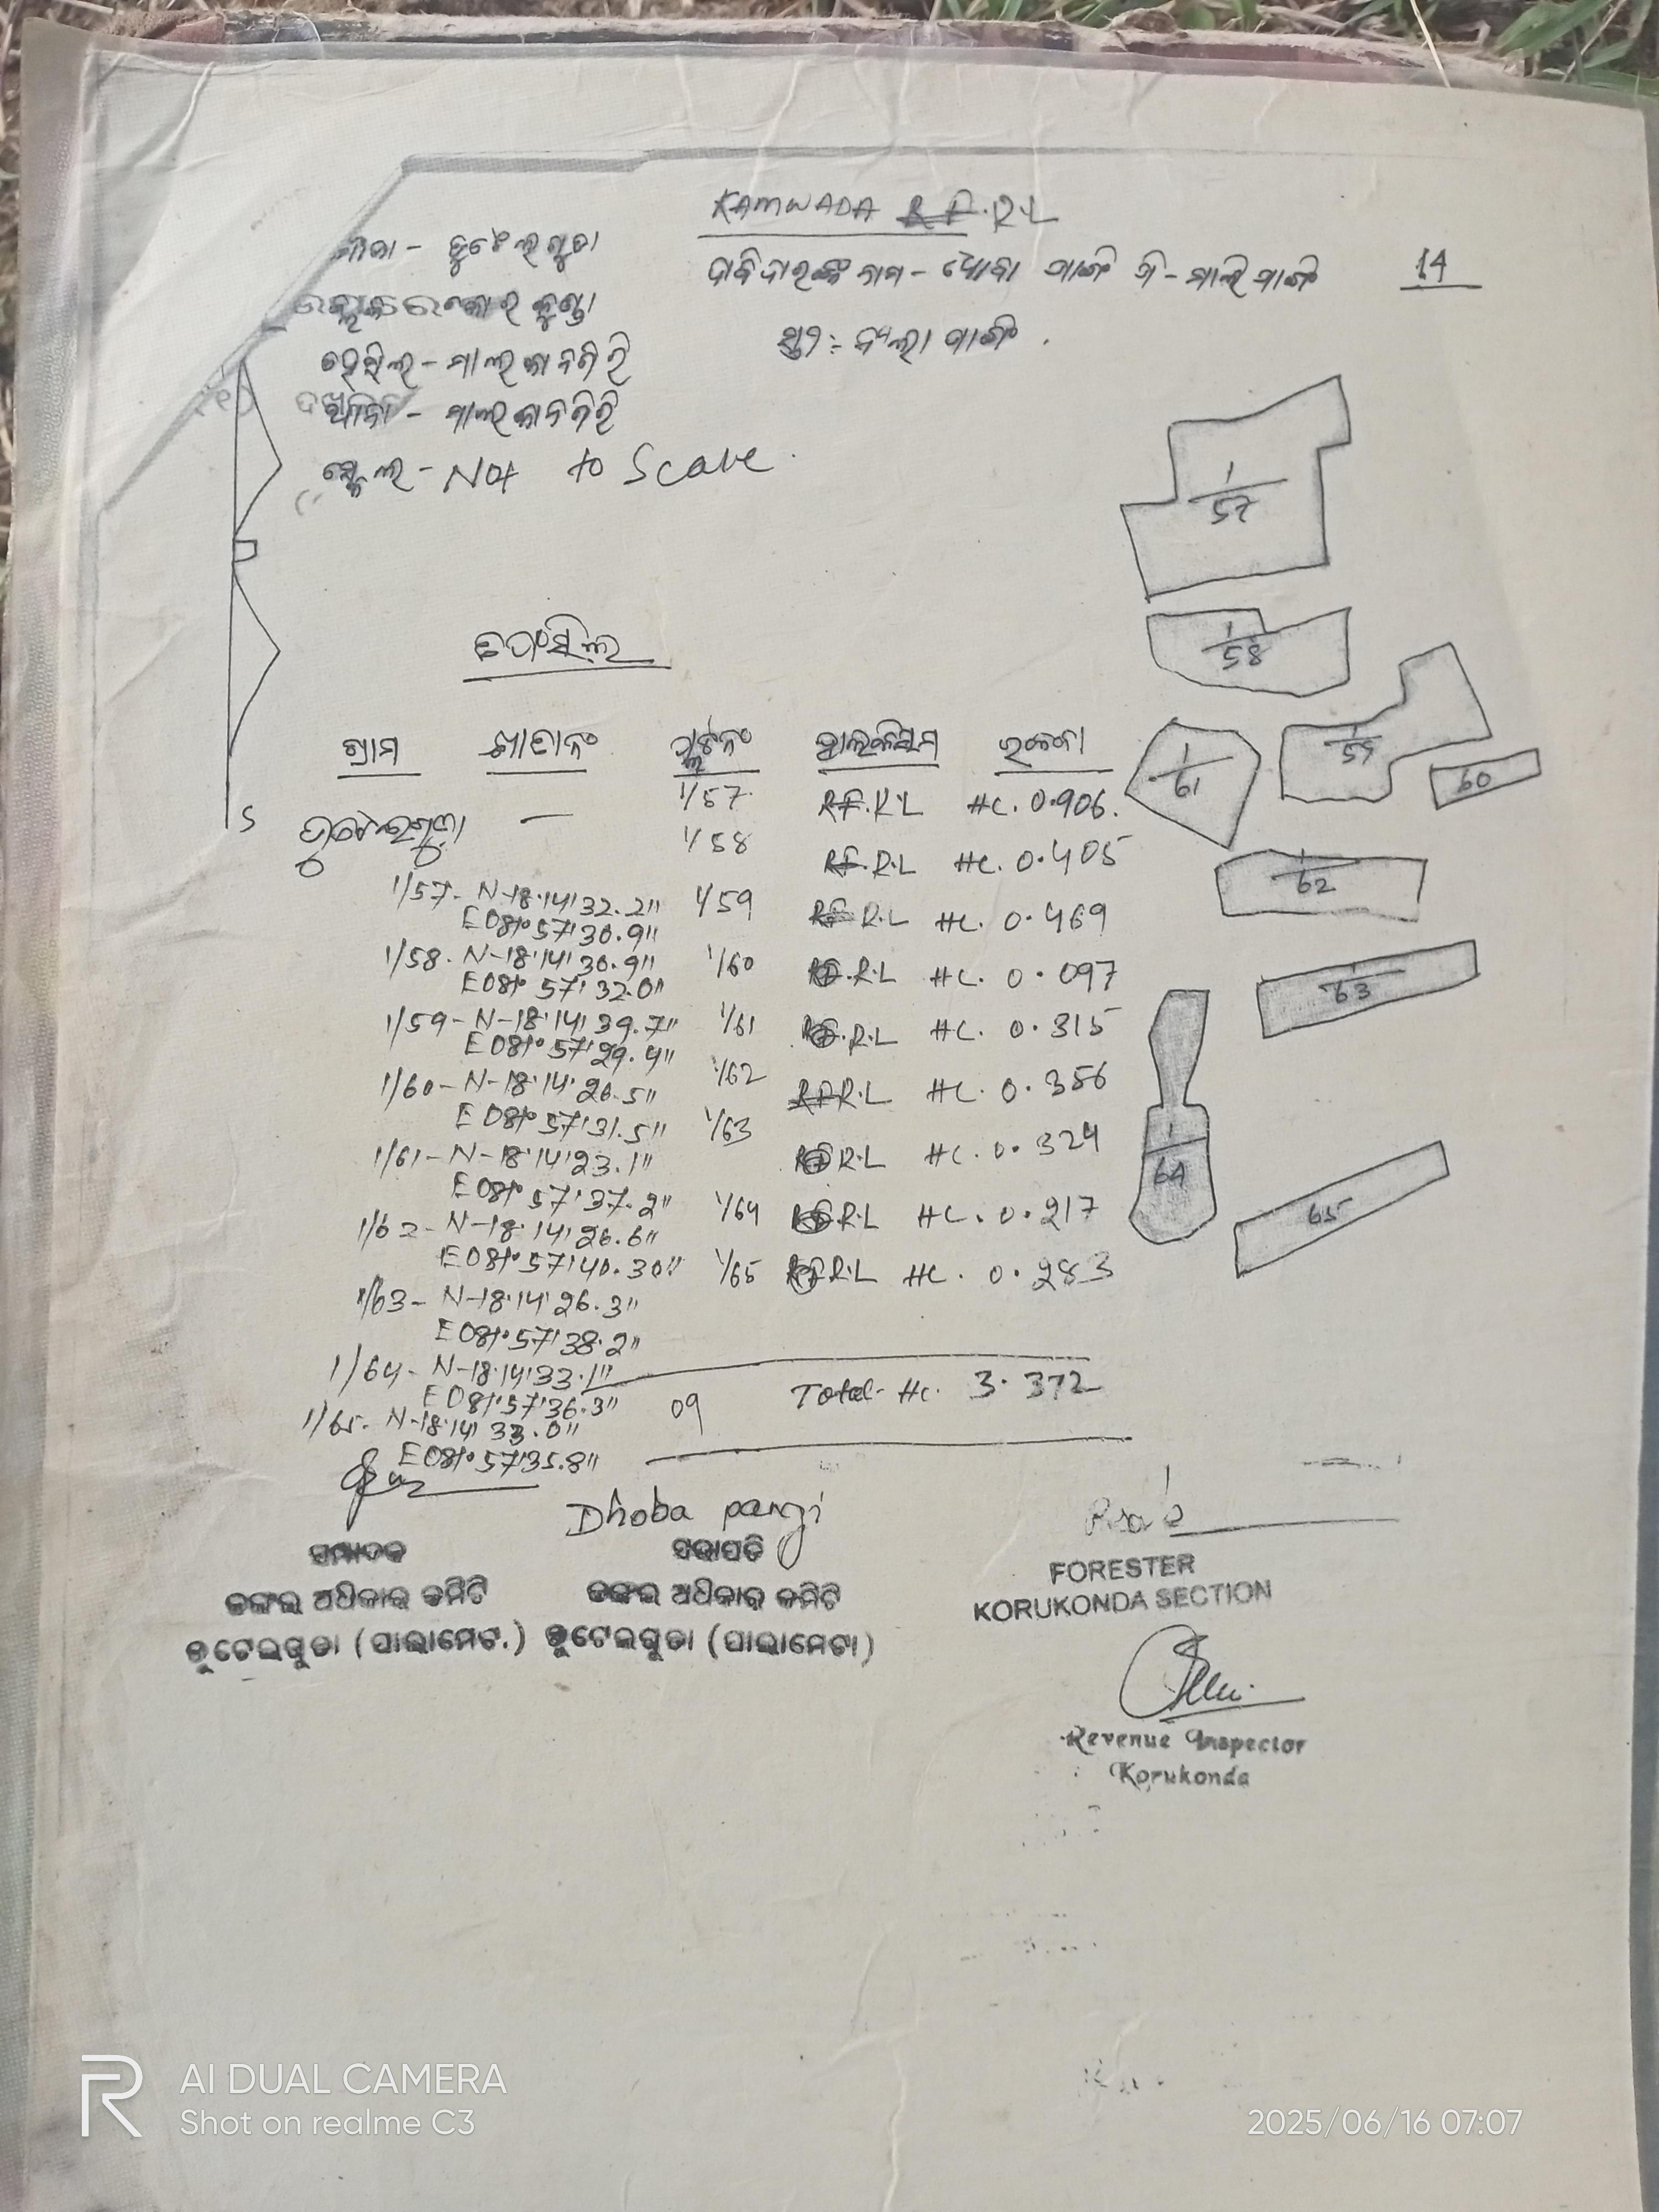 KAMWADA R.F.R.L
ମୌଜା - ଭୁଟେଇଗୁଡା
ଦାବିଦାରଙ୍କ ନାମ - ଧୋବା ପାଙ୍ଗି ପି - ମାଲି ପାଙ୍ଗି 14
ସ୍ତ୍ରୀ :-
ତହସିଲ - ମାଲକାନଗିରି
ଥାନା - ମାଲକାନଗିରି
ସ୍କେଲ - Not to Scale.
1/57
1/58
1/59
60
1/61
1/62
1/63
1/64
65
ତପସିଲ
ଗ୍ରାମ ଖାତା ନଂ ପ୍ଲଟ ନଂ ହାଲକିସମ ରକବା
S
ଭୁଟେଇଗୁଡା —
1/57 R.F.R.L HC. 0.906.
1/58 R.F.R.L HC. 0.405
1/59 R.F R.L HC. 0.469
1/60 R.F.R.L HC. 0.097
1/61 R.F.R.L HC. 0.315
1/62 R.F.R.L HC. 0.356
1/63 R.F R.L HC. 0.324
1/64 R.F R.L HC. 0.217
1/65 R.F R.L HC. 0.283
1/57- N-18°14'32.2"
E081°57'30.9"
1/58. N-18°14'30.9"
E081°57'32.0"
1/59- N-18°14'39.7"
E081°57'29.4"
1/60- N-18°14'26.5"
E081°57'31.5"
1/61- N-18°14'23.1"
E081°57'37.2"
1/62- N-18°14'26.6"
E081°57'40.30"
1/63- N-18°14'26.3"
E081°57'38.2"
1/64- N-18°14'33.1"
E081°57'36.3"
1/65- N-18°14'33.0"
E081°57'35.8"
09 Total- Hc. 3.372
Dhoba pangi
ସମ୍ପାଦକ
ଜଙ୍ଗଲ ଅଧିକାର କମିଟି
ଭୁଟେଇଗୁଡା (ପାଲାମେଟ.)
ସଭାପତି
ଜଙ୍ଗଲ ଅଧିକାର କମିଟି
ଭୁଟେଇଗୁଡା (ପାଲାମେଟା)
FORESTER
KORUKONDA SECTION
Revenue Inspector
Korukonda
AI DUAL CAMERA
Shot on realme C3
2025/06/16 07:07